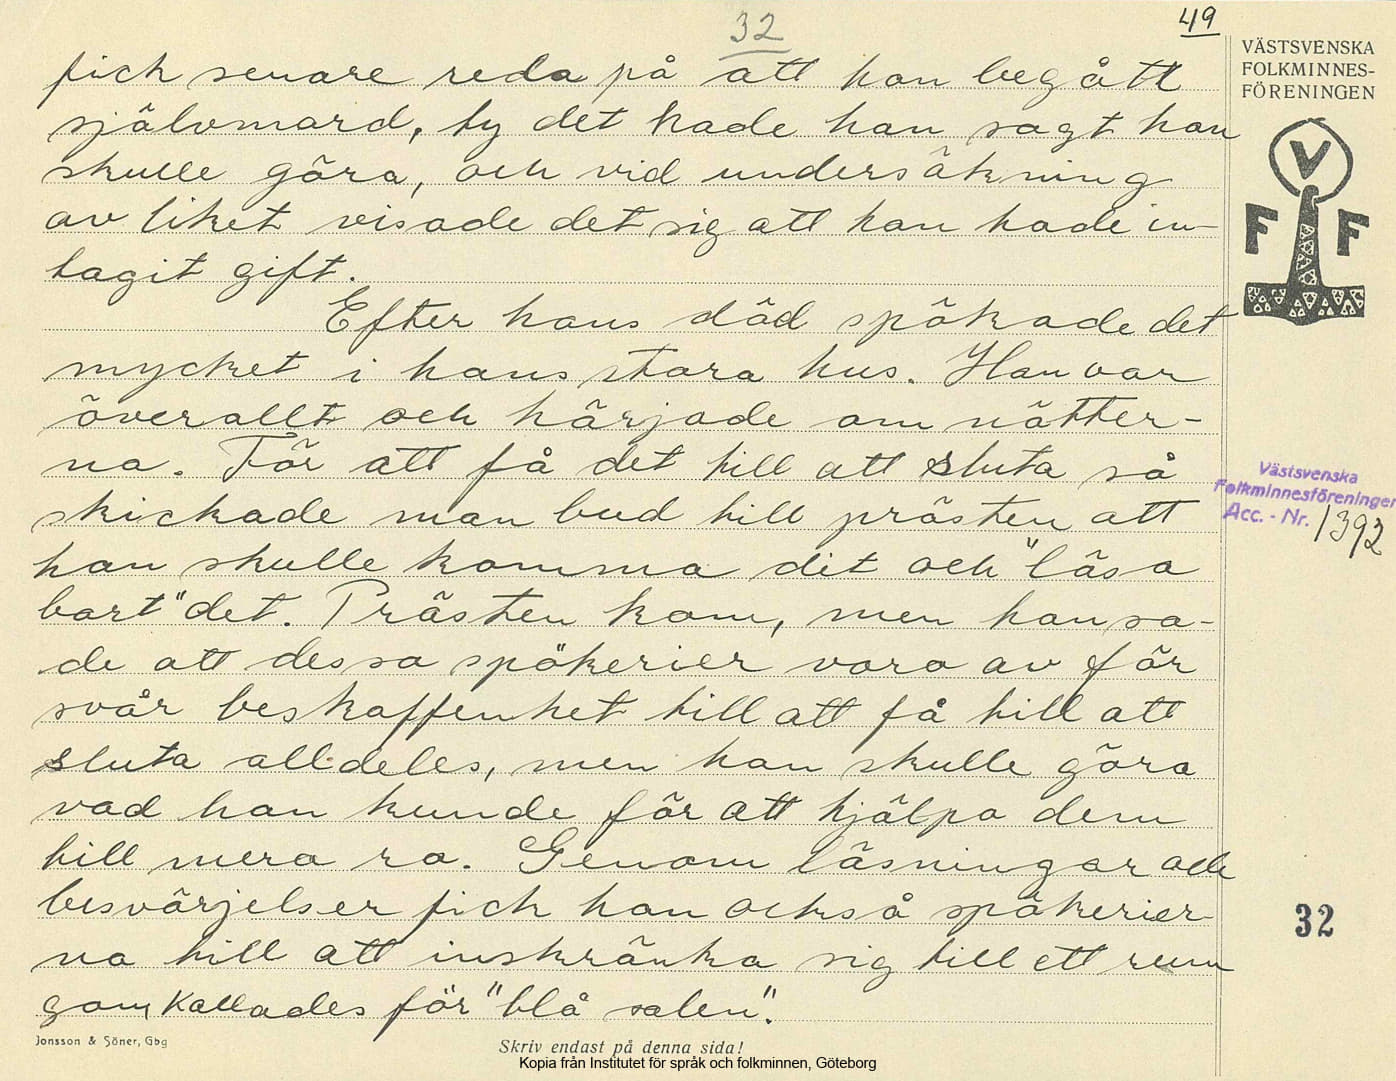 32
49
fick senare reda på att han begått
självmord, ty det hade han sagt han
skulle göra, och vid undersökning
av liket visade det sig att han hade in-
tagit gift.
Efter hans död spökade det
mycket i hans stora hus. Han var
överallt och härjade om nätter-
na. För att få det till att sluta så
skickade man bud till prästen att
han skulle komma dit och "läsa
bort" det. Prästen kom, men han sa-
de att dessa spökerier voro av för
svår beskaffenhet till att få till att
sluta alldeles, men han skulle göra
vad han kunde för att hjälpa dem
till mera ro. Genom läsningar och
besvärjelser fick han också spökerier-
na till att inskränka sig till ett rum
som kallades för "blå salen".
VÄSTSVENSKA
FOLKMINNES-
FÖRENINGEN
V
F F
Västsvenska
Folkminnesföreningen
Acc. - Nr. 1392
32
Jonsson & Söner, Gbg
Skriv endast på denna sida!
Kopia från Institutet för språk och folkminnen, Göteborg